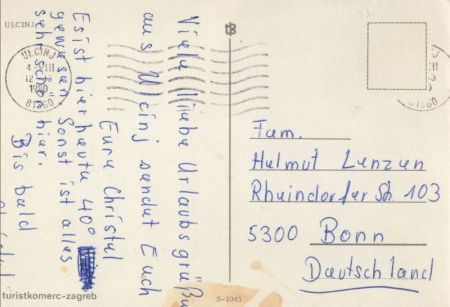 ULCINJ
Viele liebe Urlaubsgrüße
aus Ulcinj sendet Euch
Eure Christel
Es ist hier heute 40°
gewesen. Sonst ist alles
sehr schön hier.
Bis bald
ULCINJ
1980
81360
Fam.
Helmut Lenzen
Rheindorfer Str. 103
5300 Bonn
Deutschland
turistkomerc-zagreb
S-1045